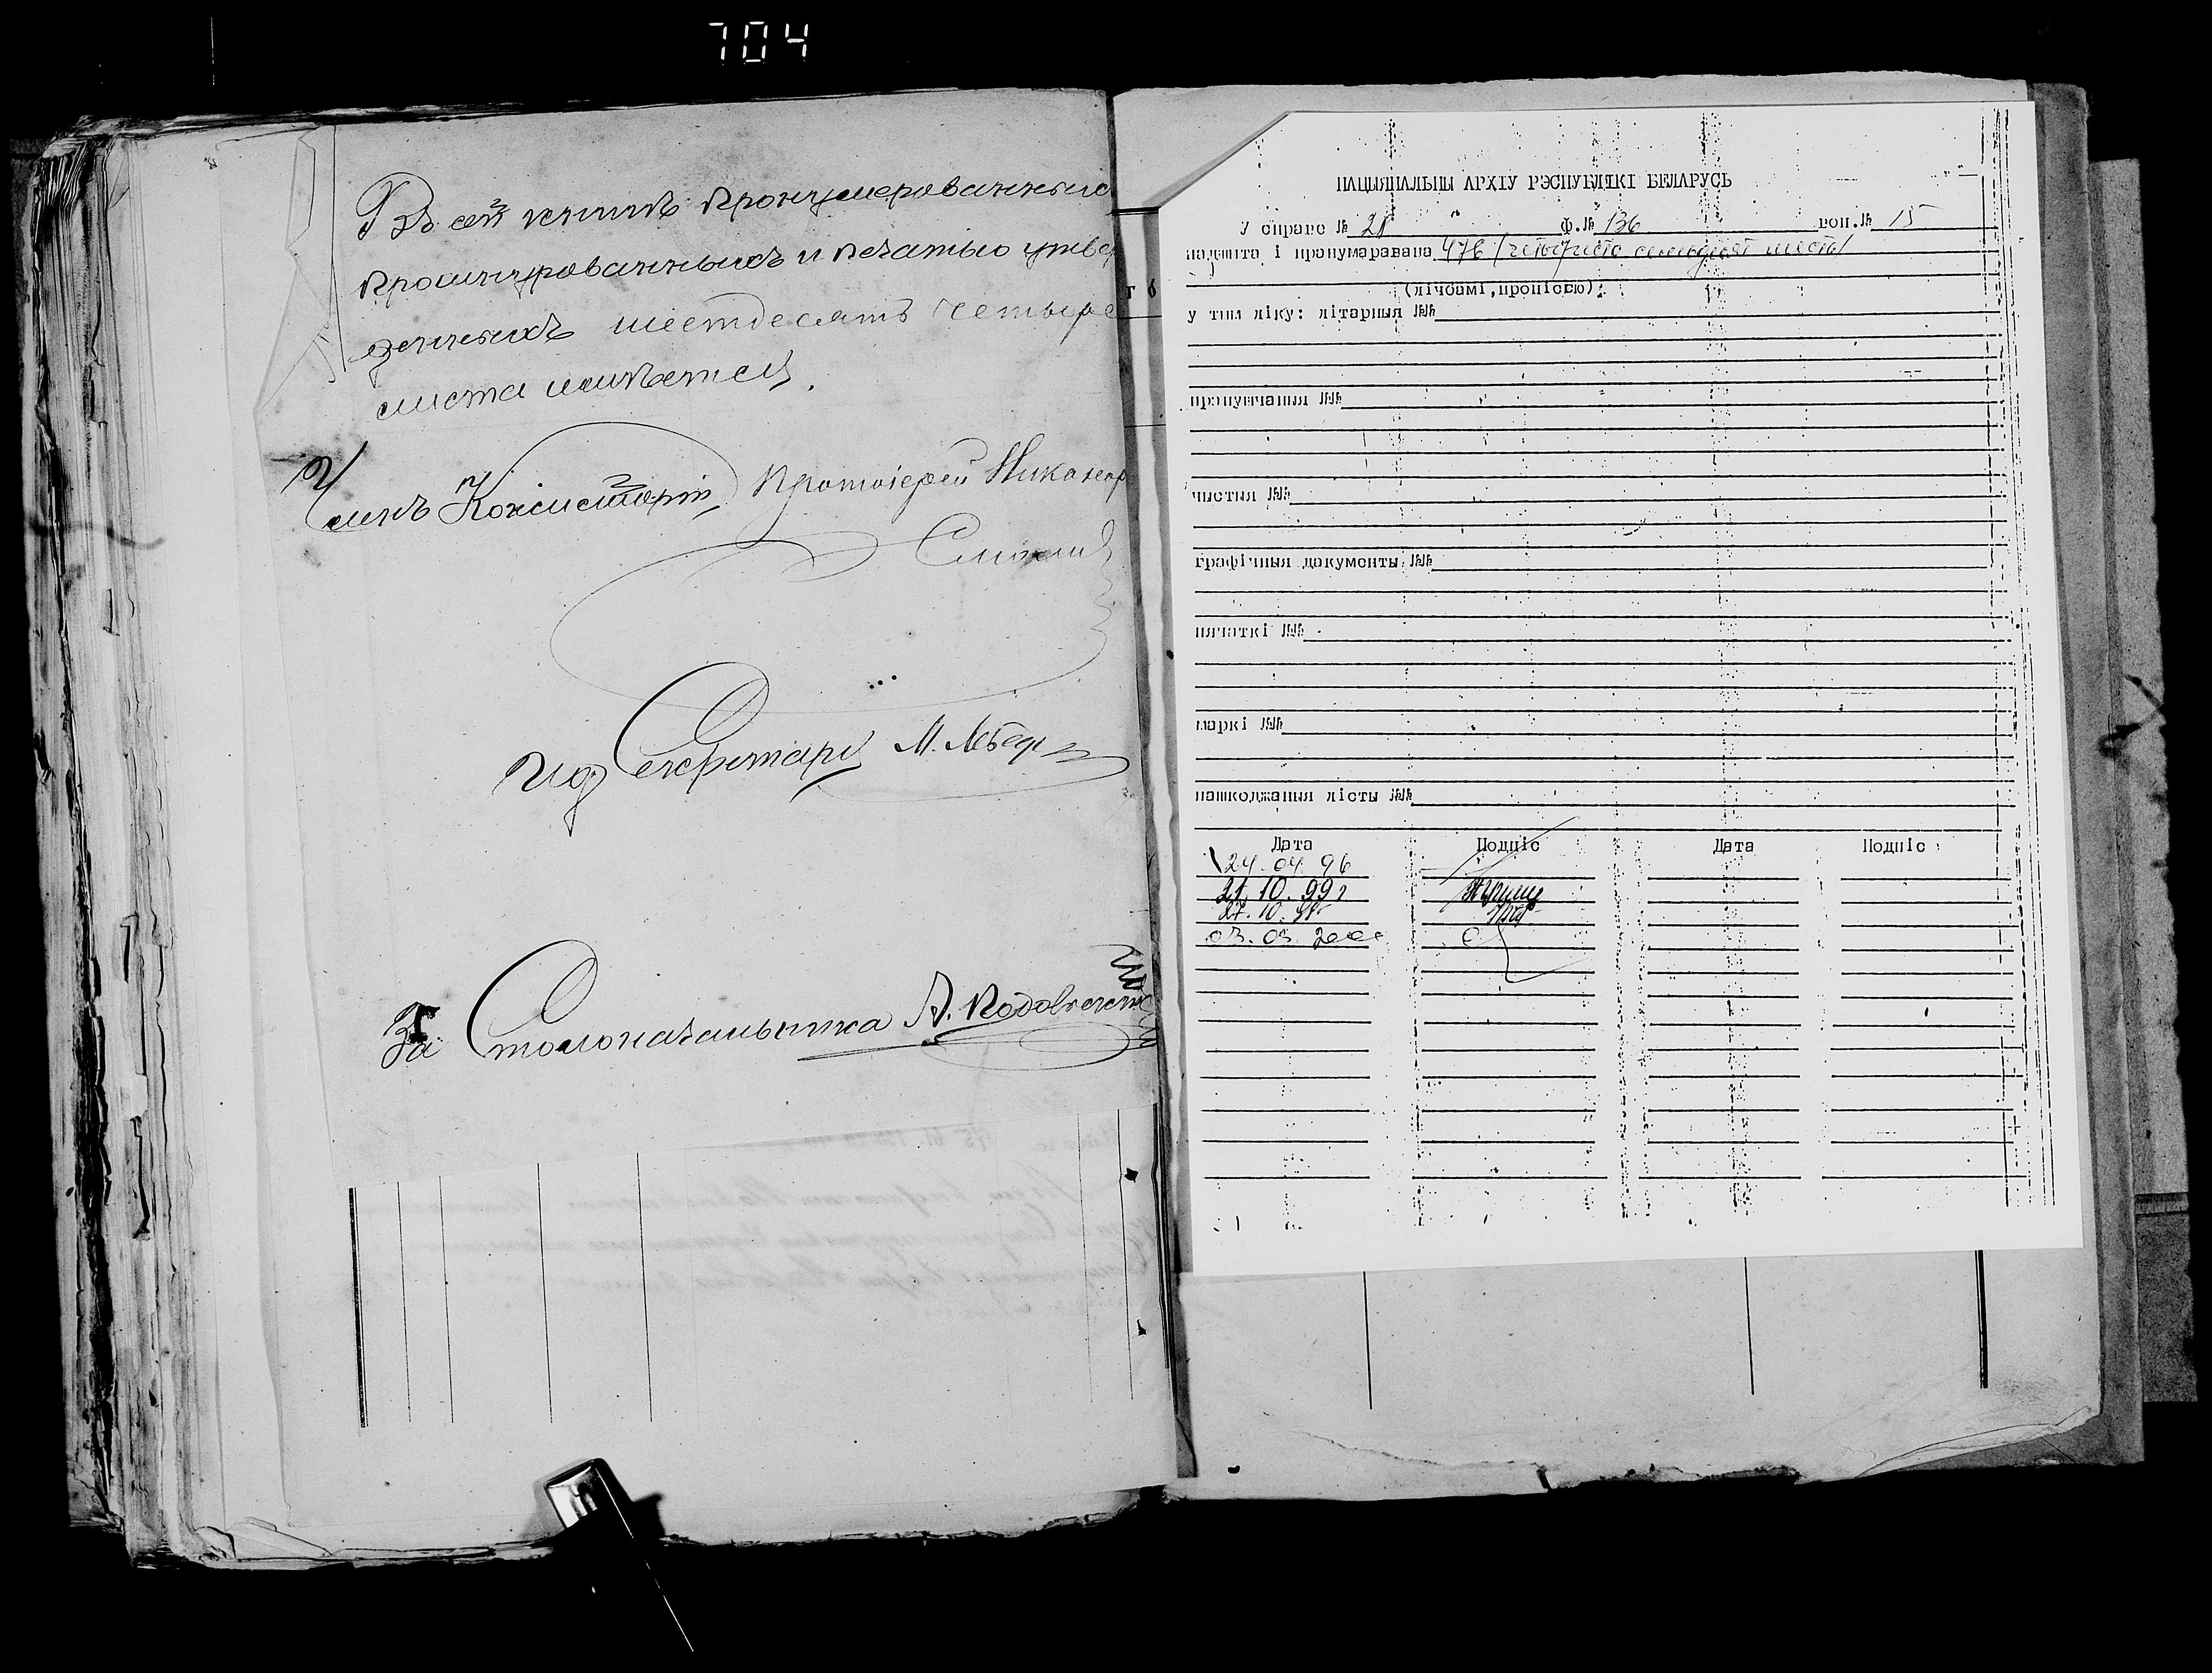 704
Въ сей книгѣ пронумерованныхъ
прошнурованныхъ и печатью утвер
жденныхъ шестдесятъ четыре
листа имѣется.
Членъ Консисторіи, Протоіерей Никанор
Смолич
И д Секретаря М. Лебед
За Столоначальника А.
НАЦЫЯНАЛЬНЫ АРХІУ РЭСПУБЛІКІ БЕЛАРУСЬ
У справе № 21 ф.№ 136 воп.№ 15
падшыта і пранумаравана 476 (четыреста семьдесят шесть)
(лічбамі, пропіссю)
у тым ліку: літарныя №№
прапушчаныя №№
чыстыя №№
графічныя дакументы №№
пячаткі №№
маркі №№
пашкоджаныя лісты №№
Дата Подпіс Дата Подпіс
24.04.96
21.10.99г
27.10.
03.03.2000